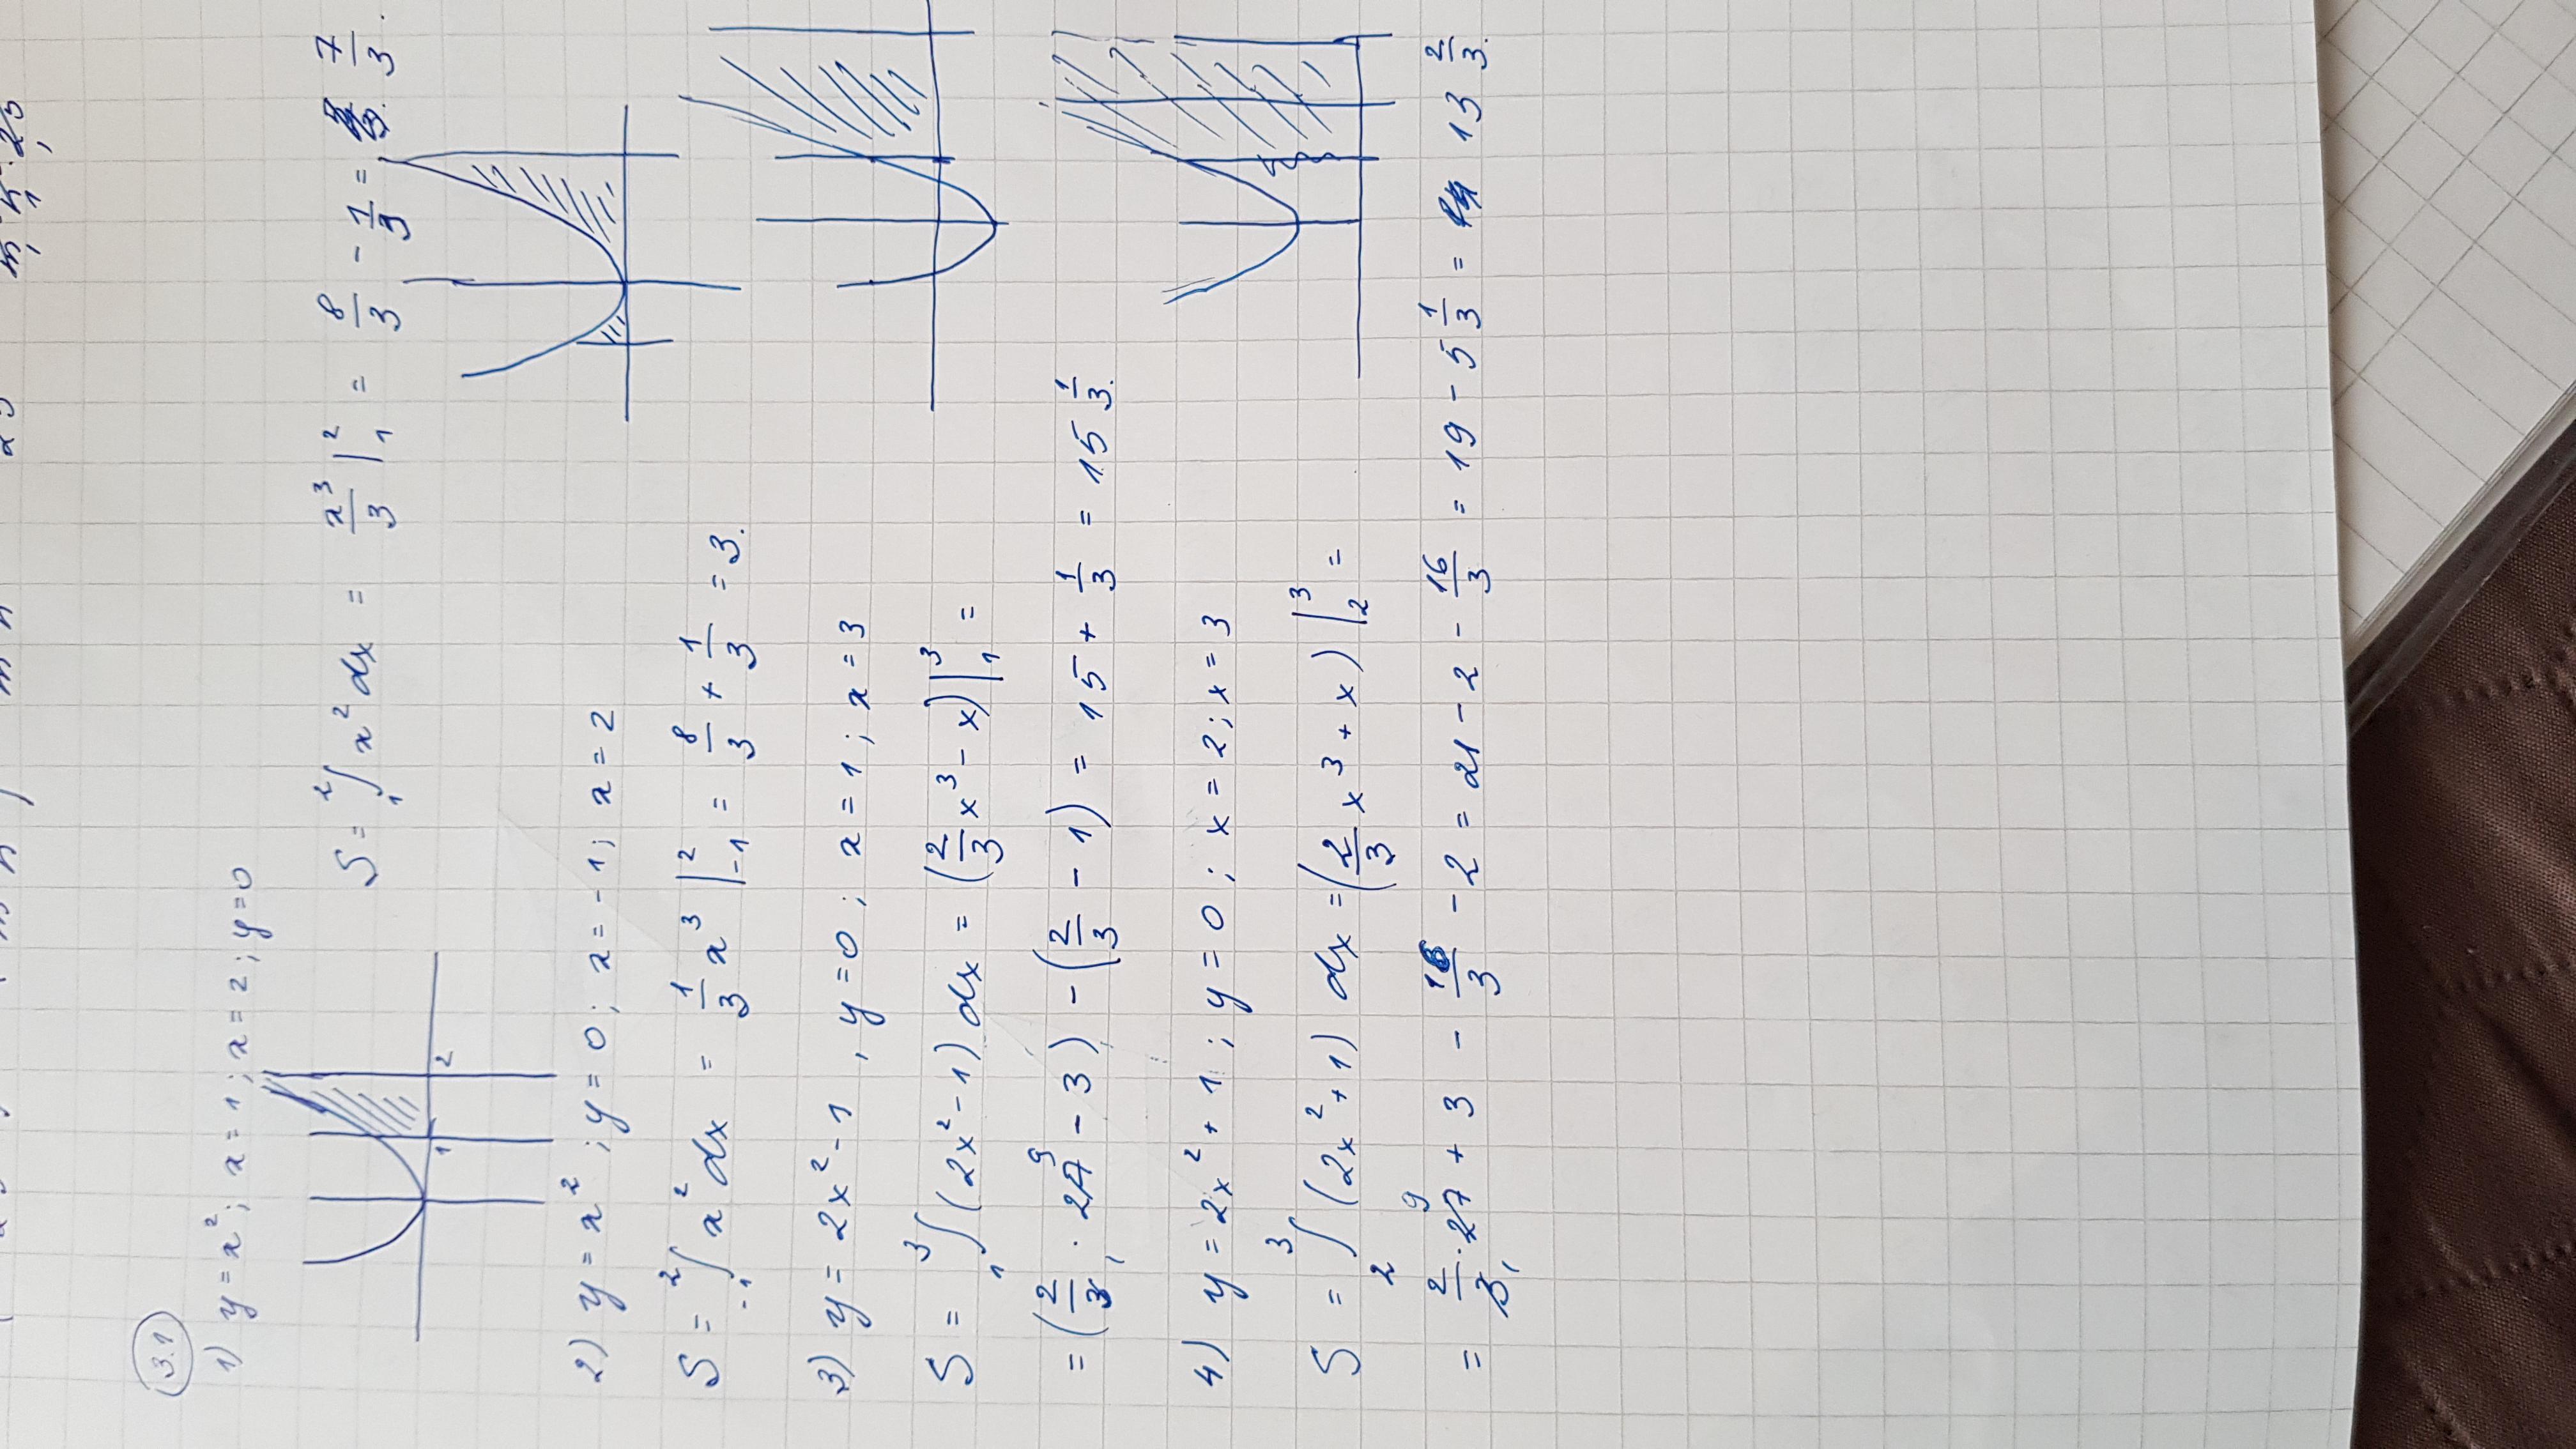 3.1
1) y = x²; x = 1; x = 2; y = 0
1 2
S = ₁²∫ x² dx = x³/3 |₁² = 8/3 - 1/3 = 7/3.
2) y = x²; y = 0; x = -1; x = 2
S = ₋₁²∫ x² dx = 1/3 x³ |₋₁² = 8/3 + 1/3 = 3.
3) y = 2x² - 1, y = 0; x = 1; x = 3
S = ₁³∫ (2x² - 1) dx = (2/3 x³ - x) |₁³ =
= (2/3₁ · 27⁹ - 3) - (2/3 - 1) = 15 + 1/3 = 15 1/3.
4) y = 2x² + 1; y = 0; x = 2; x = 3
S = ₂³∫ (2x² + 1) dx = (2/3 x³ + x) |₂³ =
= 2/3₁ · 27⁹ + 3 - 16/3 - 2 = 21 - 2 - 16/3 = 19 - 5 1/3 = 13 2/3.